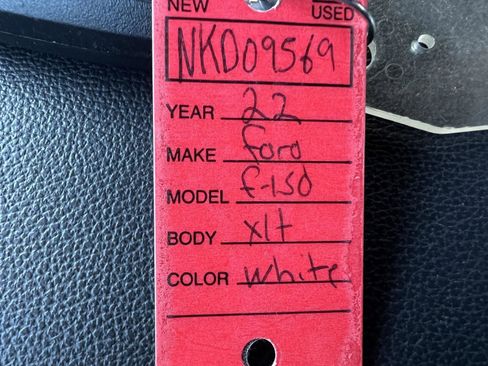 NEW USED
NKD09569
YEAR 22
MAKE ford
MODEL f-150
BODY xlt
COLOR white